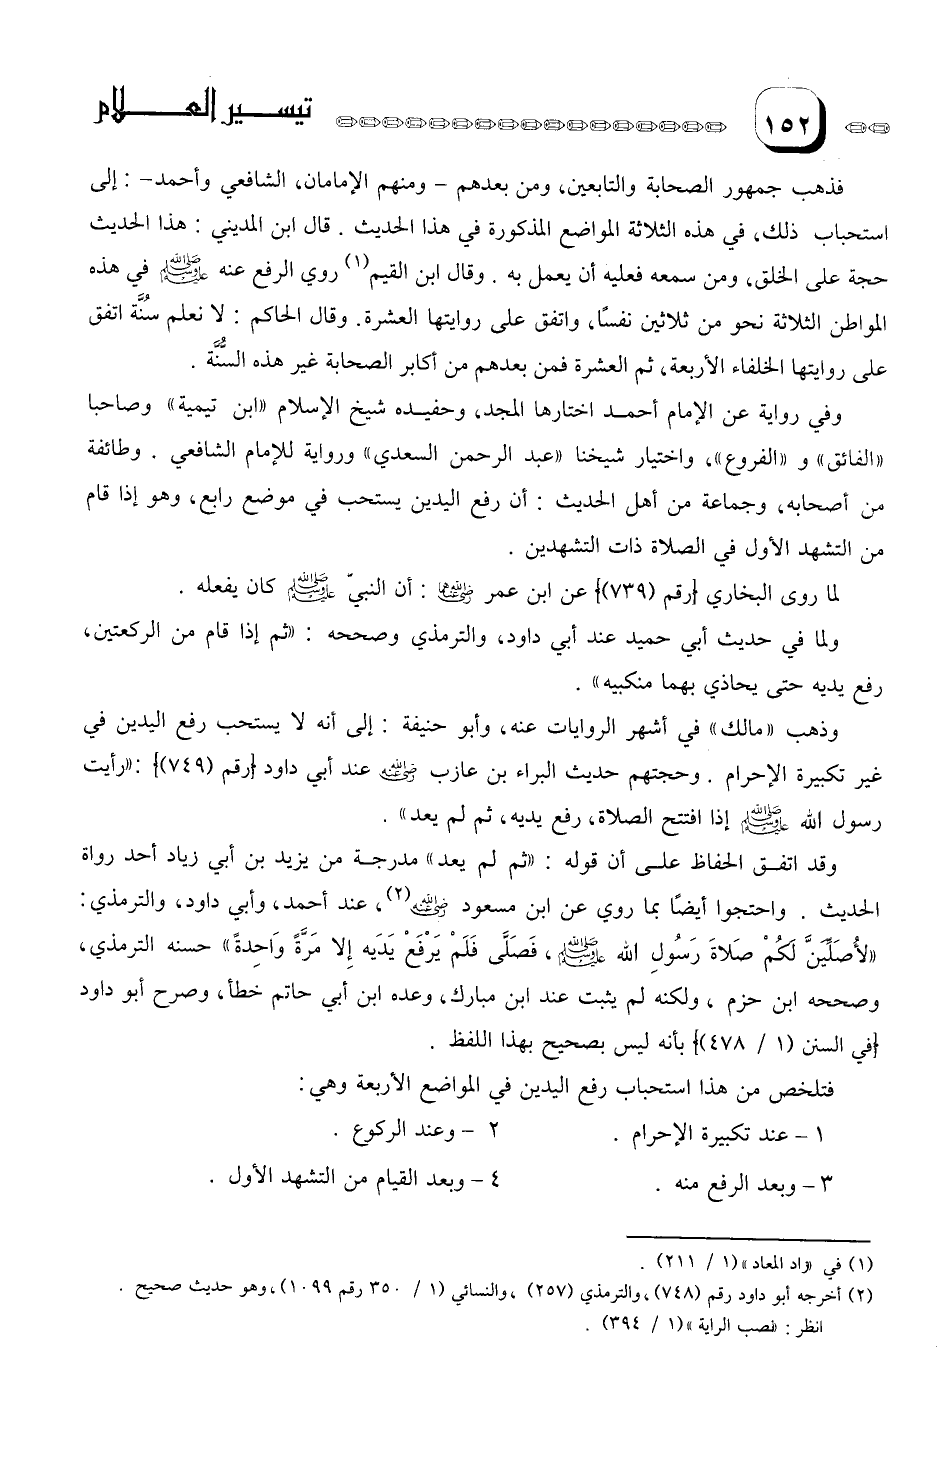 ١٥٢ تيسير العلام
فذهب جمهور الصحابة والتابعين، ومن بعدهم - ومنهم الإمامان، الشافعي وأحمد- : إلى
استحباب ذلك، في هذه الثلاثة المواضع المذكورة في هذا الحديث . قال ابن المديني : هذا الحديث
حجة على الخلق، ومن سمعه فعليه أن يعمل به . وقال ابن القيم(١) روي الرفع عنه ﷺ في هذه
المواطن الثلاثة نحو من ثلاثين نفسًا، واتفق على روايتها العشرة. وقال الحاكم : لا نعلم سنُّة اتفق
على روايتها الخلفاء الأربعة، ثم العشرة فمن بعدهم من أكابر الصحابة غير هذه السنُّة .
وفي رواية عن الإمام أحمد اختارها المجد، وحفيده شيخ الإسلام «ابن تيمية» وصاحبا
«الفائق» و «الفروع»، واختيار شيخنا «عبد الرحمن السعدي» ورواية للإمام الشافعي . وطائفة
من أصحابه، وجماعة من أهل الحديث : أن رفع اليدين يستحب في موضع رابع، وهو إذا قام
من التشهد الأول في الصلاة ذات التشهدين .
لما روى البخاري {رقم (٧٣٩)} عن ابن عمر رضي الله عنهما : أن النبيّ ﷺ كان يفعله .
ولما في حديث أبي حميد عند أبي داود، والترمذي وصححه : «ثم إذا قام من الركعتين،
رفع يديه حتى يحاذي بهما منكبيه» .
وذهب «مالك» في أشهر الروايات عنه، وأبو حنيفة : إلى أنه لا يستحب رفع اليدين في
غير تكبيرة الإحرام . وحجتهم حديث البراء بن عازب رضي الله عنه عند أبي داود {رقم (٧٤٩)} :«رأيت
رسول الله ﷺ إذا افتتح الصلاة، رفع يديه، ثم لم يعد» .
وقد اتفق الحفاظ على أن قوله : «ثم لم يعد» مدرجة من يزيد بن أبي زياد أحد رواة
الحديث . واحتجوا أيضًا بما روي عن ابن مسعود رضي الله عنه(٢)، عند أحمد، وأبي داود، والترمذي:
«لأُصلِّيَنَّ لَكُمْ صَلاةَ رَسُولِ الله ﷺ، فَصَلَّى فَلَمْ يَرْفَعْ يَدَيه إلا مَرَّةً وَاحِدةً» حسنه الترمذي،
وصححه ابن حزم ، ولكنه لم يثبت عند ابن مبارك، وعده ابن أبي حاتم خطأ، وصرح أبو داود
{في السنن (١ / ٤٧٨)} بأنه ليس بصحيح بهذا اللفظ .
فتلخص من هذا استحباب رفع اليدين في المواضع الأربعة وهي:
١ - عند تكبيرة الإحرام . ٢ - وعند الركوع .
٣ - وبعد الرفع منه . ٤ - وبعد القيام من التشهد الأول .
(١) في «زاد المعاد» (١ / ٢١١) .
(٢) أخرجه أبو داود رقم (٧٤٨)، والترمذي (٢٥٧) ، والنسائي (١ / ٣٥٠ رقم ١٠٩٩)، وهو حديث صحيح .
انظر : «نصب الراية» (١ / ٣٩٤) .